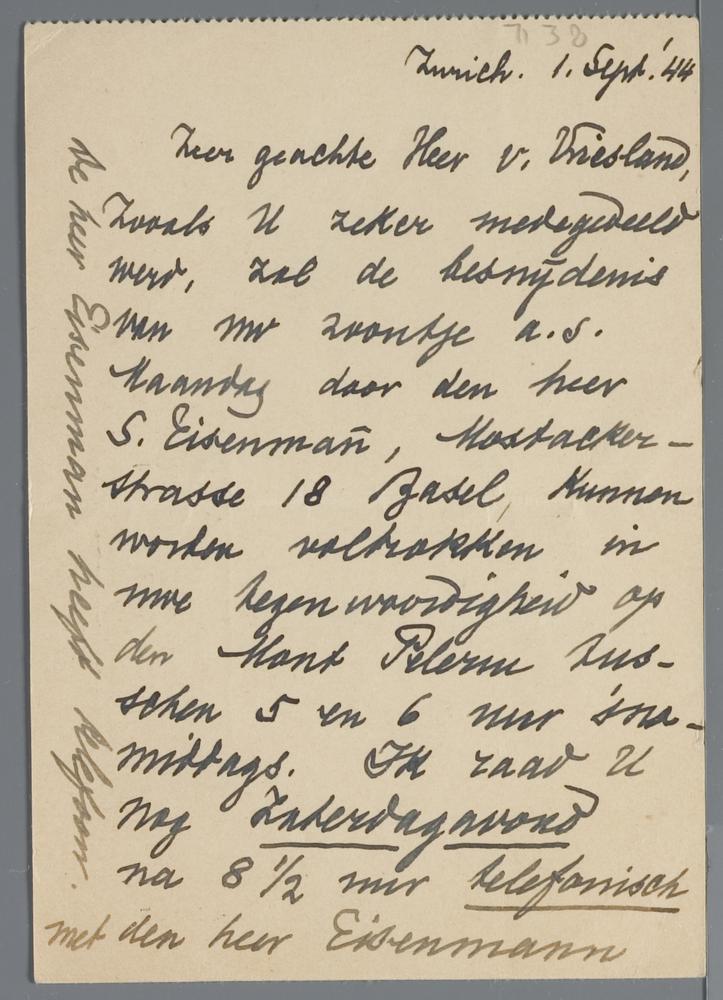 Zurich. 1. Sept.'44
Zeer geachte Heer v. Vriesland,
Zooals U zeker medegedeeld
werd, zal de besnijdenis
van uw zoontje a.s.
Maandag door den heer
S. Eisenmann, Mostacker-
strasse 18 Basel, kunnen
worden voltrokken in
uwe tegenwoordigheid op
den Mont Pelerin tus-
schen 5 en 6 uur 's na-
middags. Ik raad U
nog Zaterdagavond
na 8 1/2 uur telefonisch
met den heer Eisenmann
De heer Eisenman heeft telefoon.